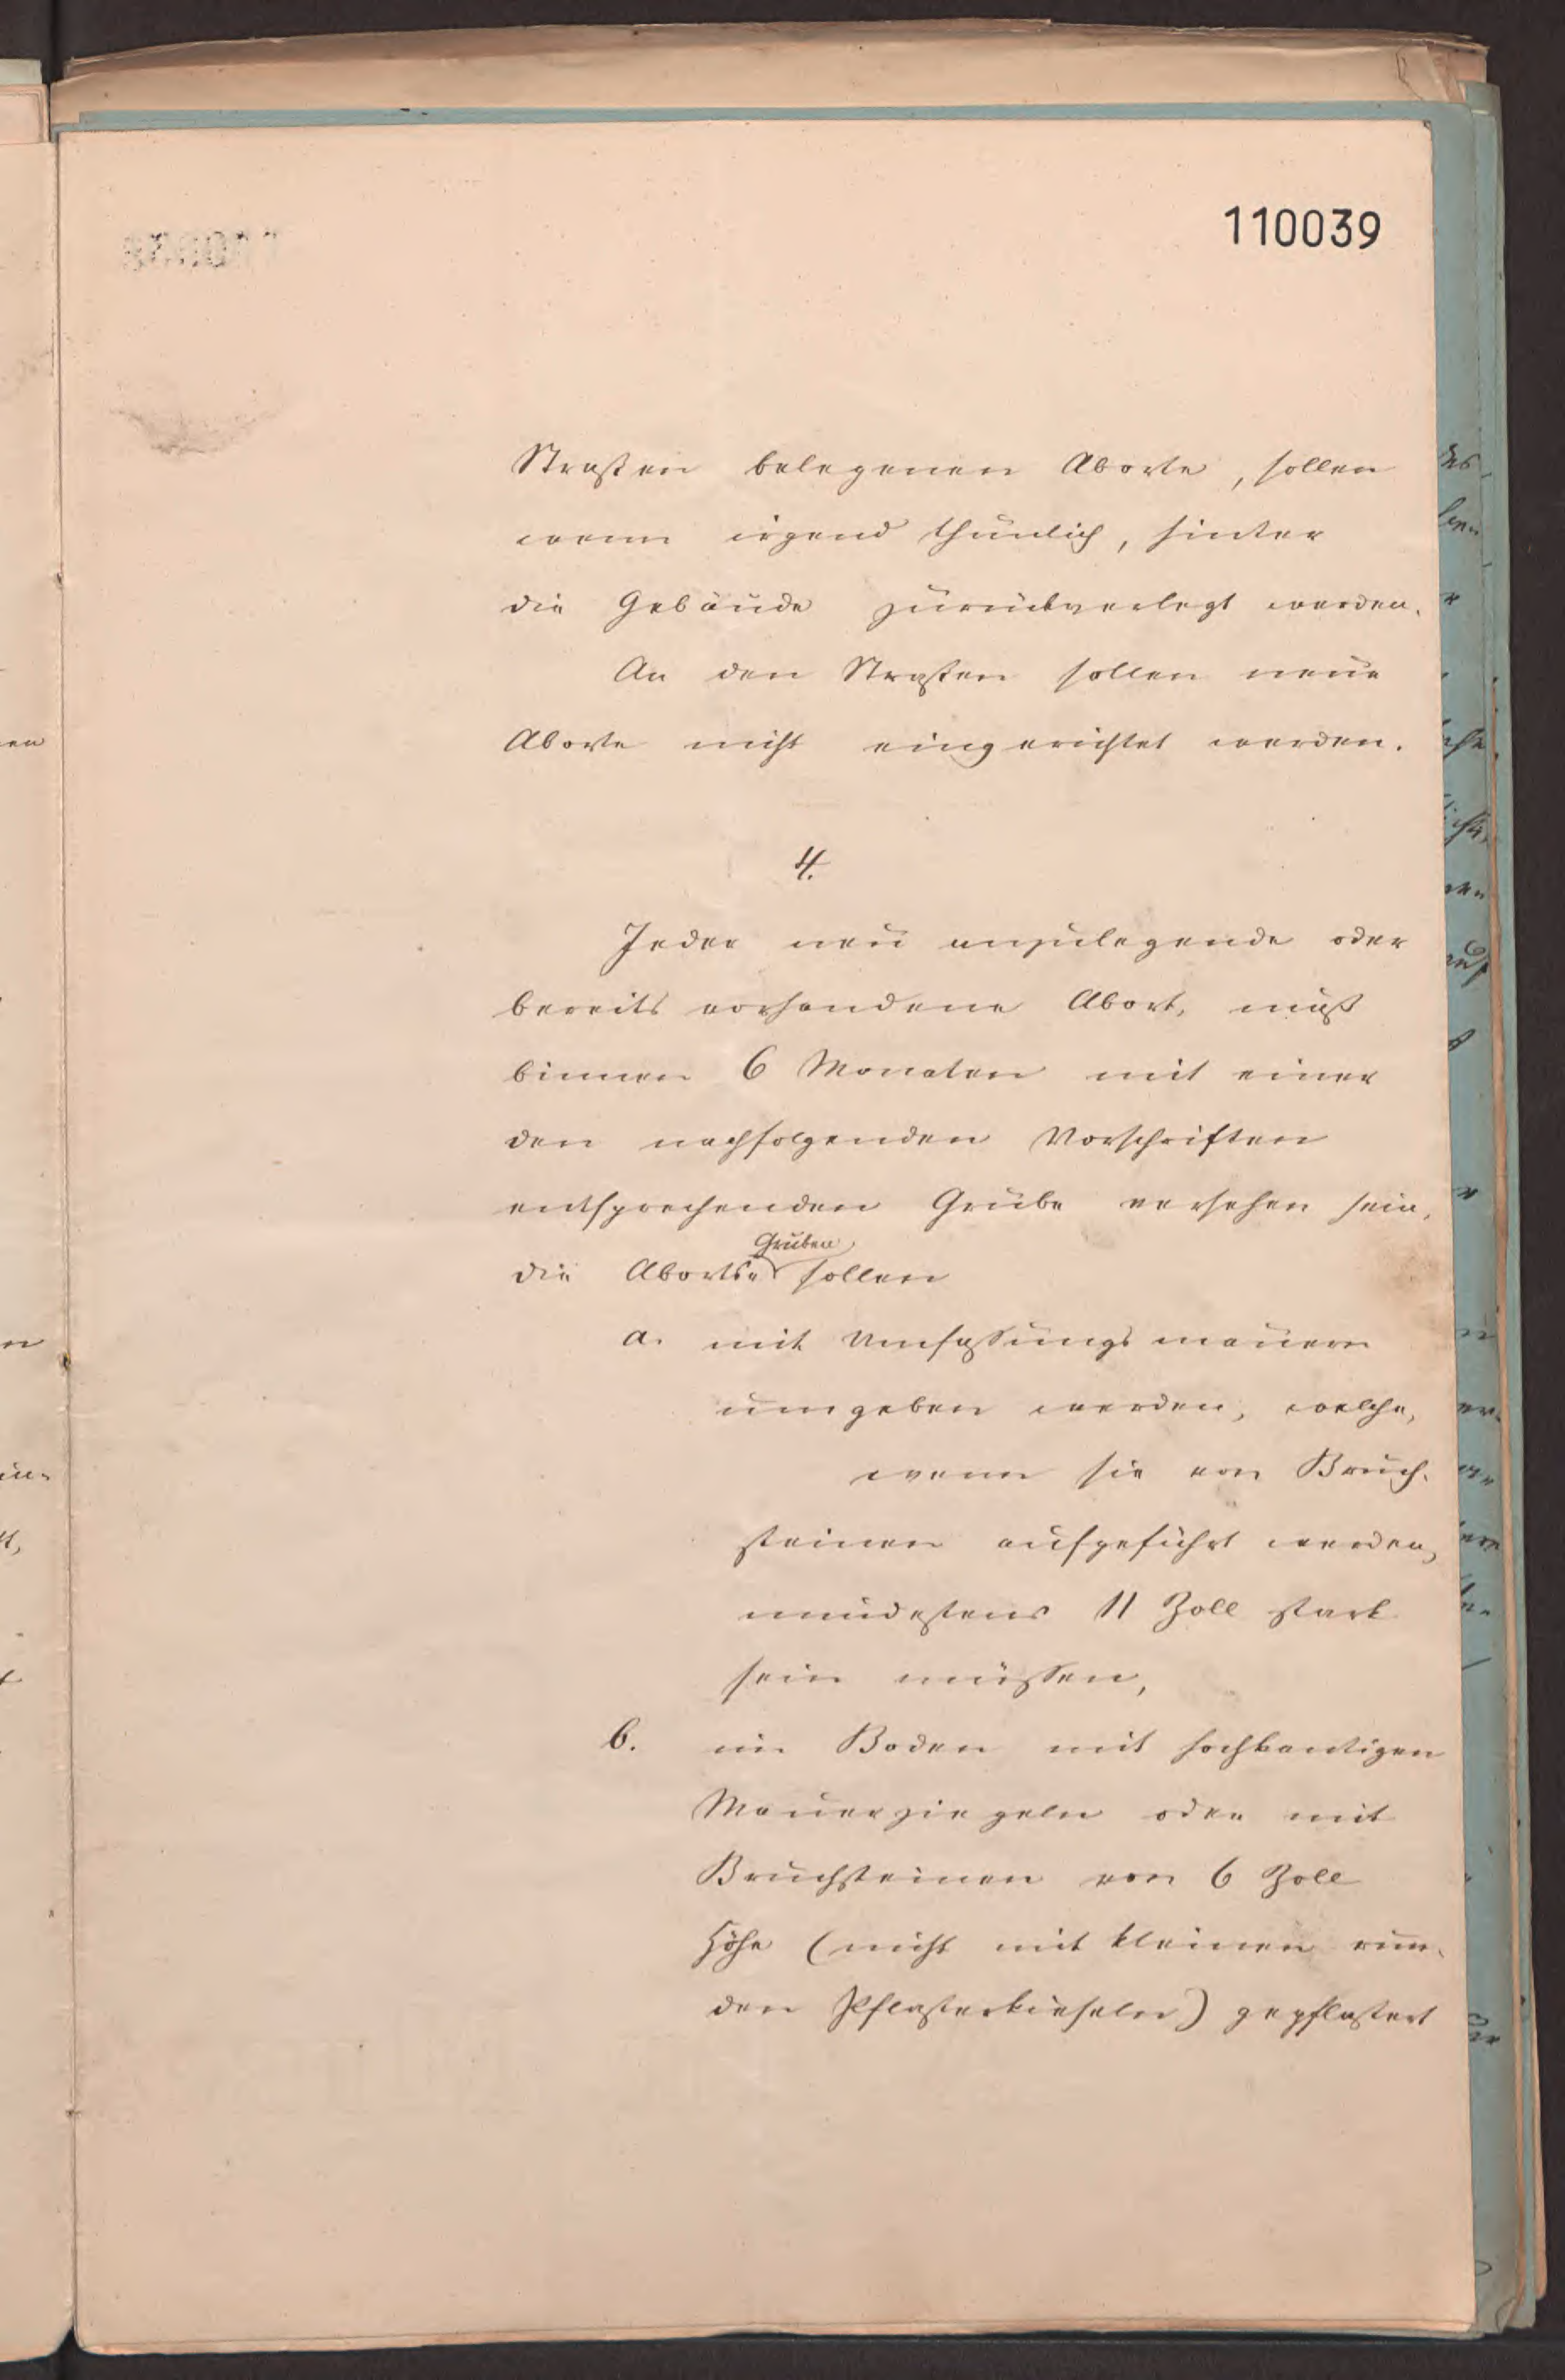 110039
Straßen belegenen Aborte, sollen
wenn irgend thunlich, hinter
die Gebäude zurückverlegt werden.
An den Straßen sollen neue
Aborte nicht eingerichtet werden.
4.
Jeder neu anzulegende oder
bereits vorhandene Abort, muß
binnen 6 Monaten mit einer
den nachfolgenden Vorschriften
entsprechenden Grube versehen sein,
Gruben
die Aborts- sollen
a. mit Umfassungsmauern
umgeben werden, welche,
wenn sie von Bruch-
steinen aufgeführt werden,
mindestens 11 Zoll stark
sein müssen,
b. im Boden mit hochkantigen
Mauerziegeln oder mit
Bruchsteinen von 6 Zoll
Höhe (nicht mit kleinen run-
den Pflasterkieseln) gepflastert